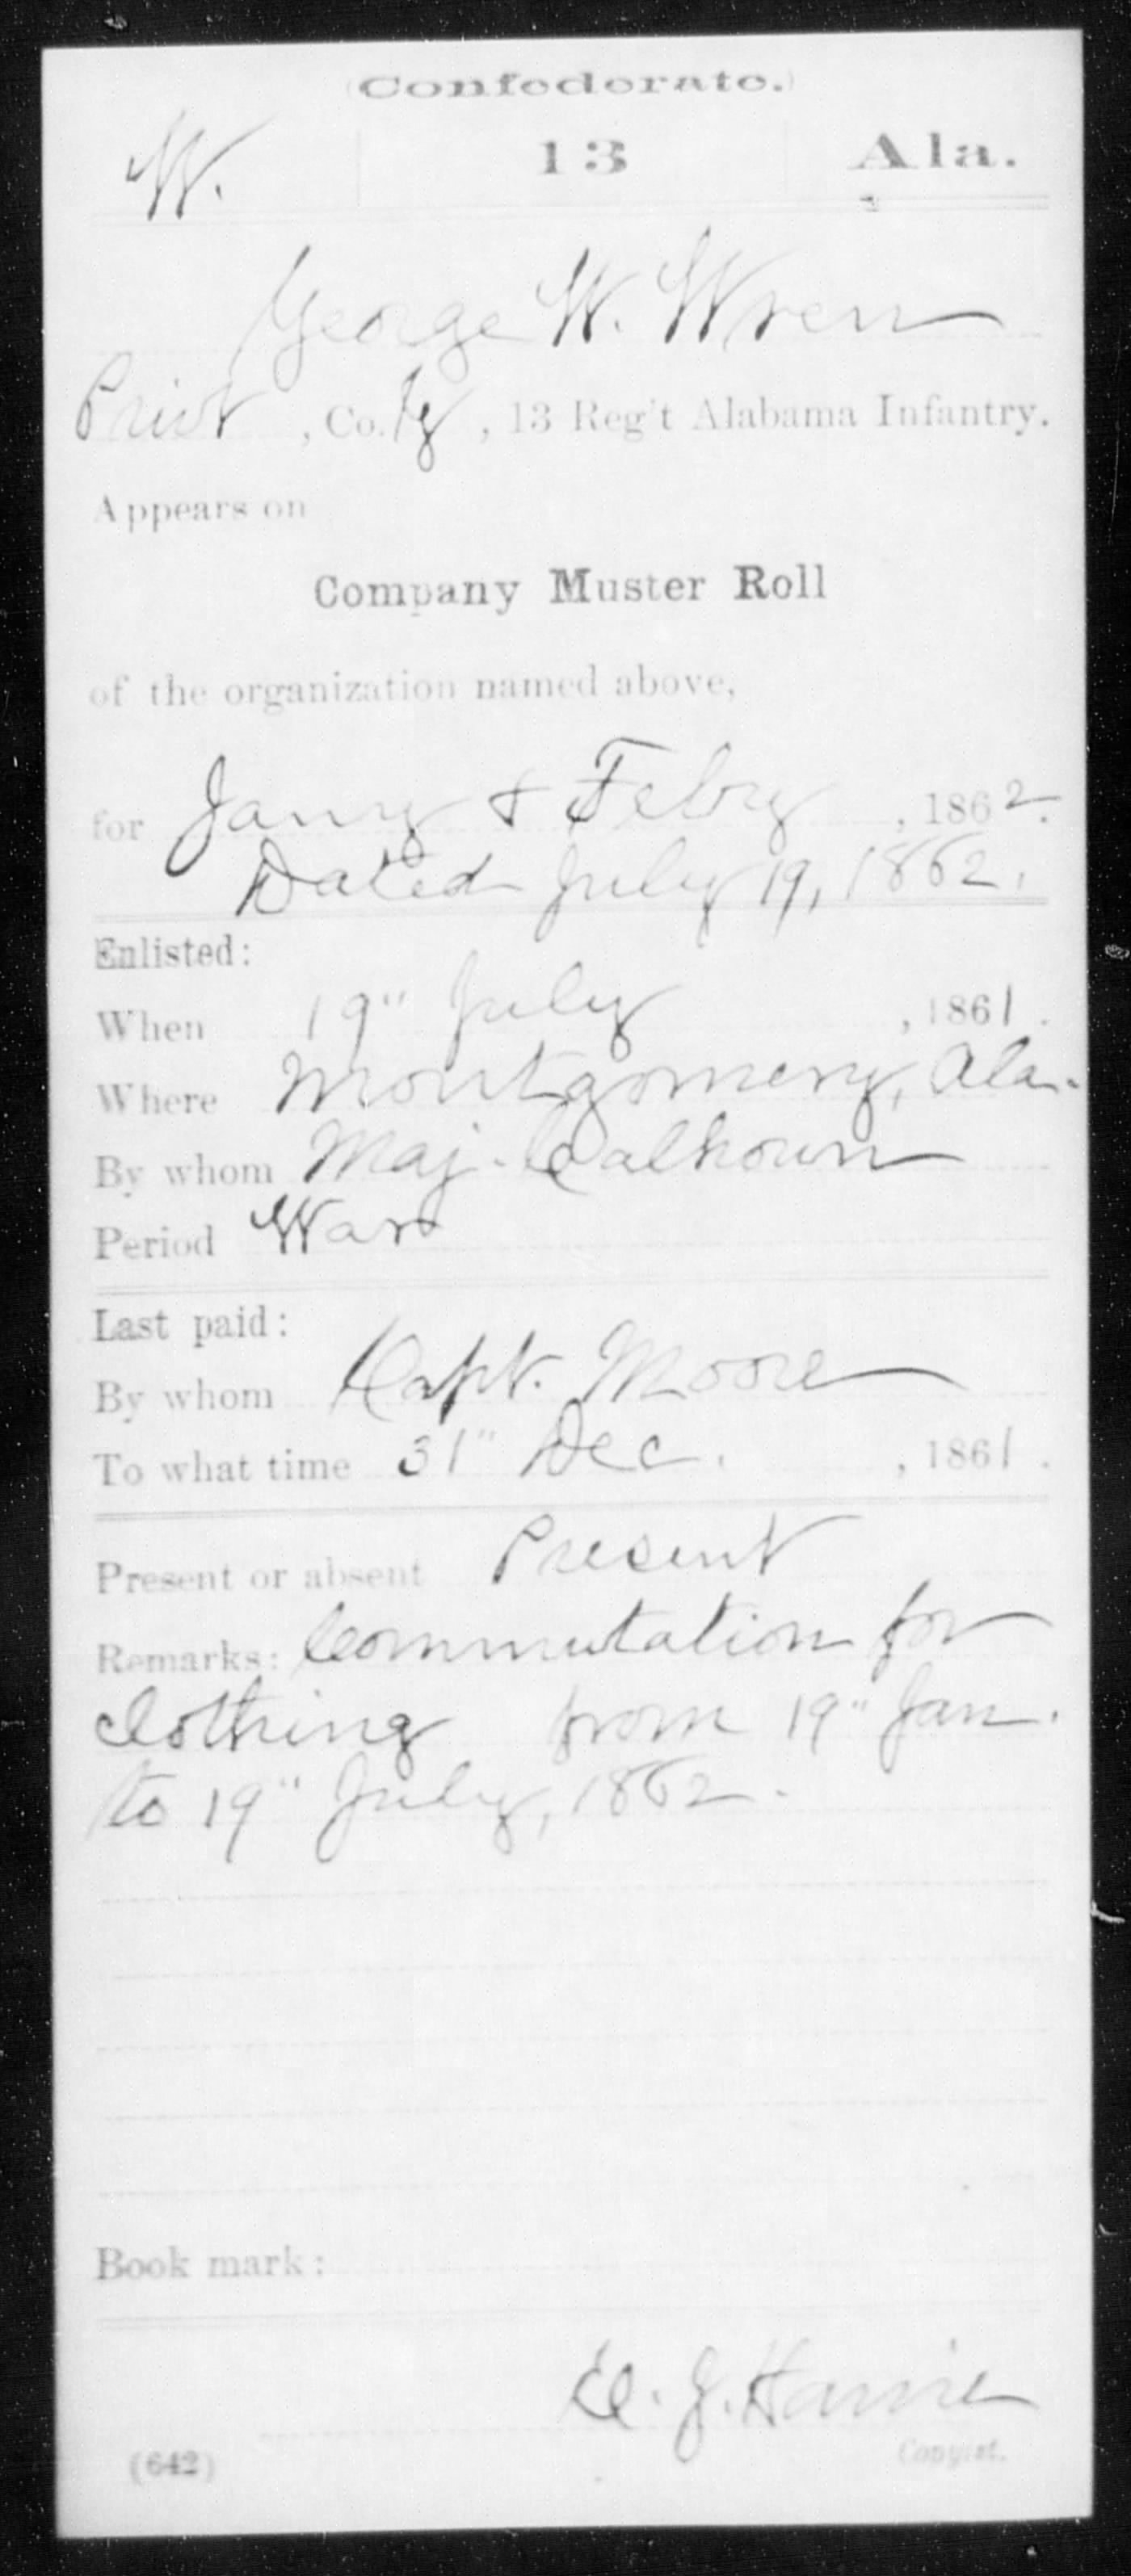 (Confederate.)
W. 13 Ala.
George W. Wren
Privt, Co. G, 13 Reg't Alabama Infantry.
Appears on
Company Muster Roll
of the organization named above,
for Jany & Feby, 1862.
Dated July 19, 1862.
Enlisted:
When 19" July, 1861.
Where Montgomery, Ala.
By whom Maj. Calhoun
Period War
Last paid:
By whom Capt. Moore
To what time 31" Dec., 1861.
Present or absent Present
Remarks: Commutation for
clothing from 19" Jan.
to 19" July, 1862.
Book mark:
J.
(642) Copyist.